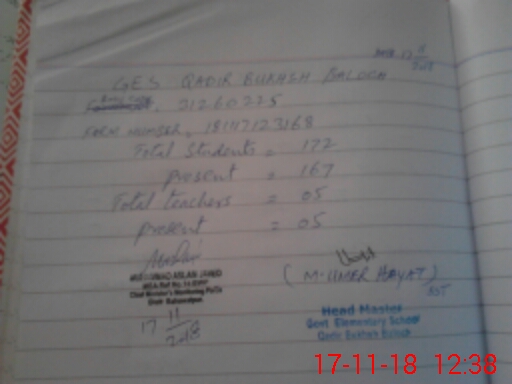 Date 17 11/2018
GES QADIR BUKHSH BALOCH
EMIS CODE. 31260225
FORM NUMBER. 181117123168
Total Students = 172
present = 167
Total teachers = 05
present = 05
MUHAMMAD ASLAM JAVED
Chief Minister's Monitoring Force
Distt: Bahawalpur
17 11/2018
(M. UMER HAYAT)
EST
Head Master
Govt Elementary School
Qadir Bukhsh Baloch
17-11-18 12:38